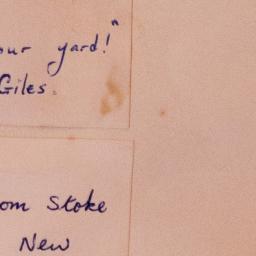 our yard!"
Giles.
om Stoke
New